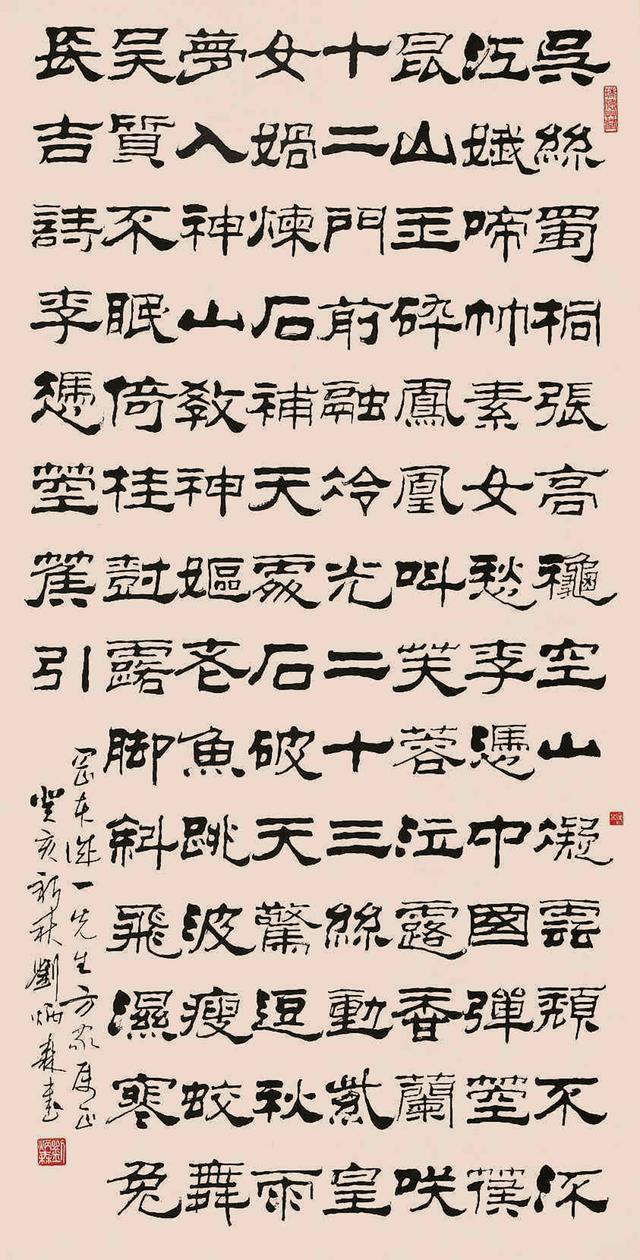 吳絲蜀桐張高龝空山凝雲頹不流
江娥啼竹素女愁李憑中國彈箜篌
昆山玉碎鳳凰叫芙蓉泣露香蘭咲
十二門前融冷光二十三絲動紫皇
女媧煉石補天處石破天驚逗秋雨
夢入神山教神嫗老魚跳波瘦蛟舞
吳質不眠倚桂樹露脚斜飛濕寒兔
長吉詩李憑箜篌引
岡本一先生方家屬正
癸亥新秋劉炳森書
劉炳森